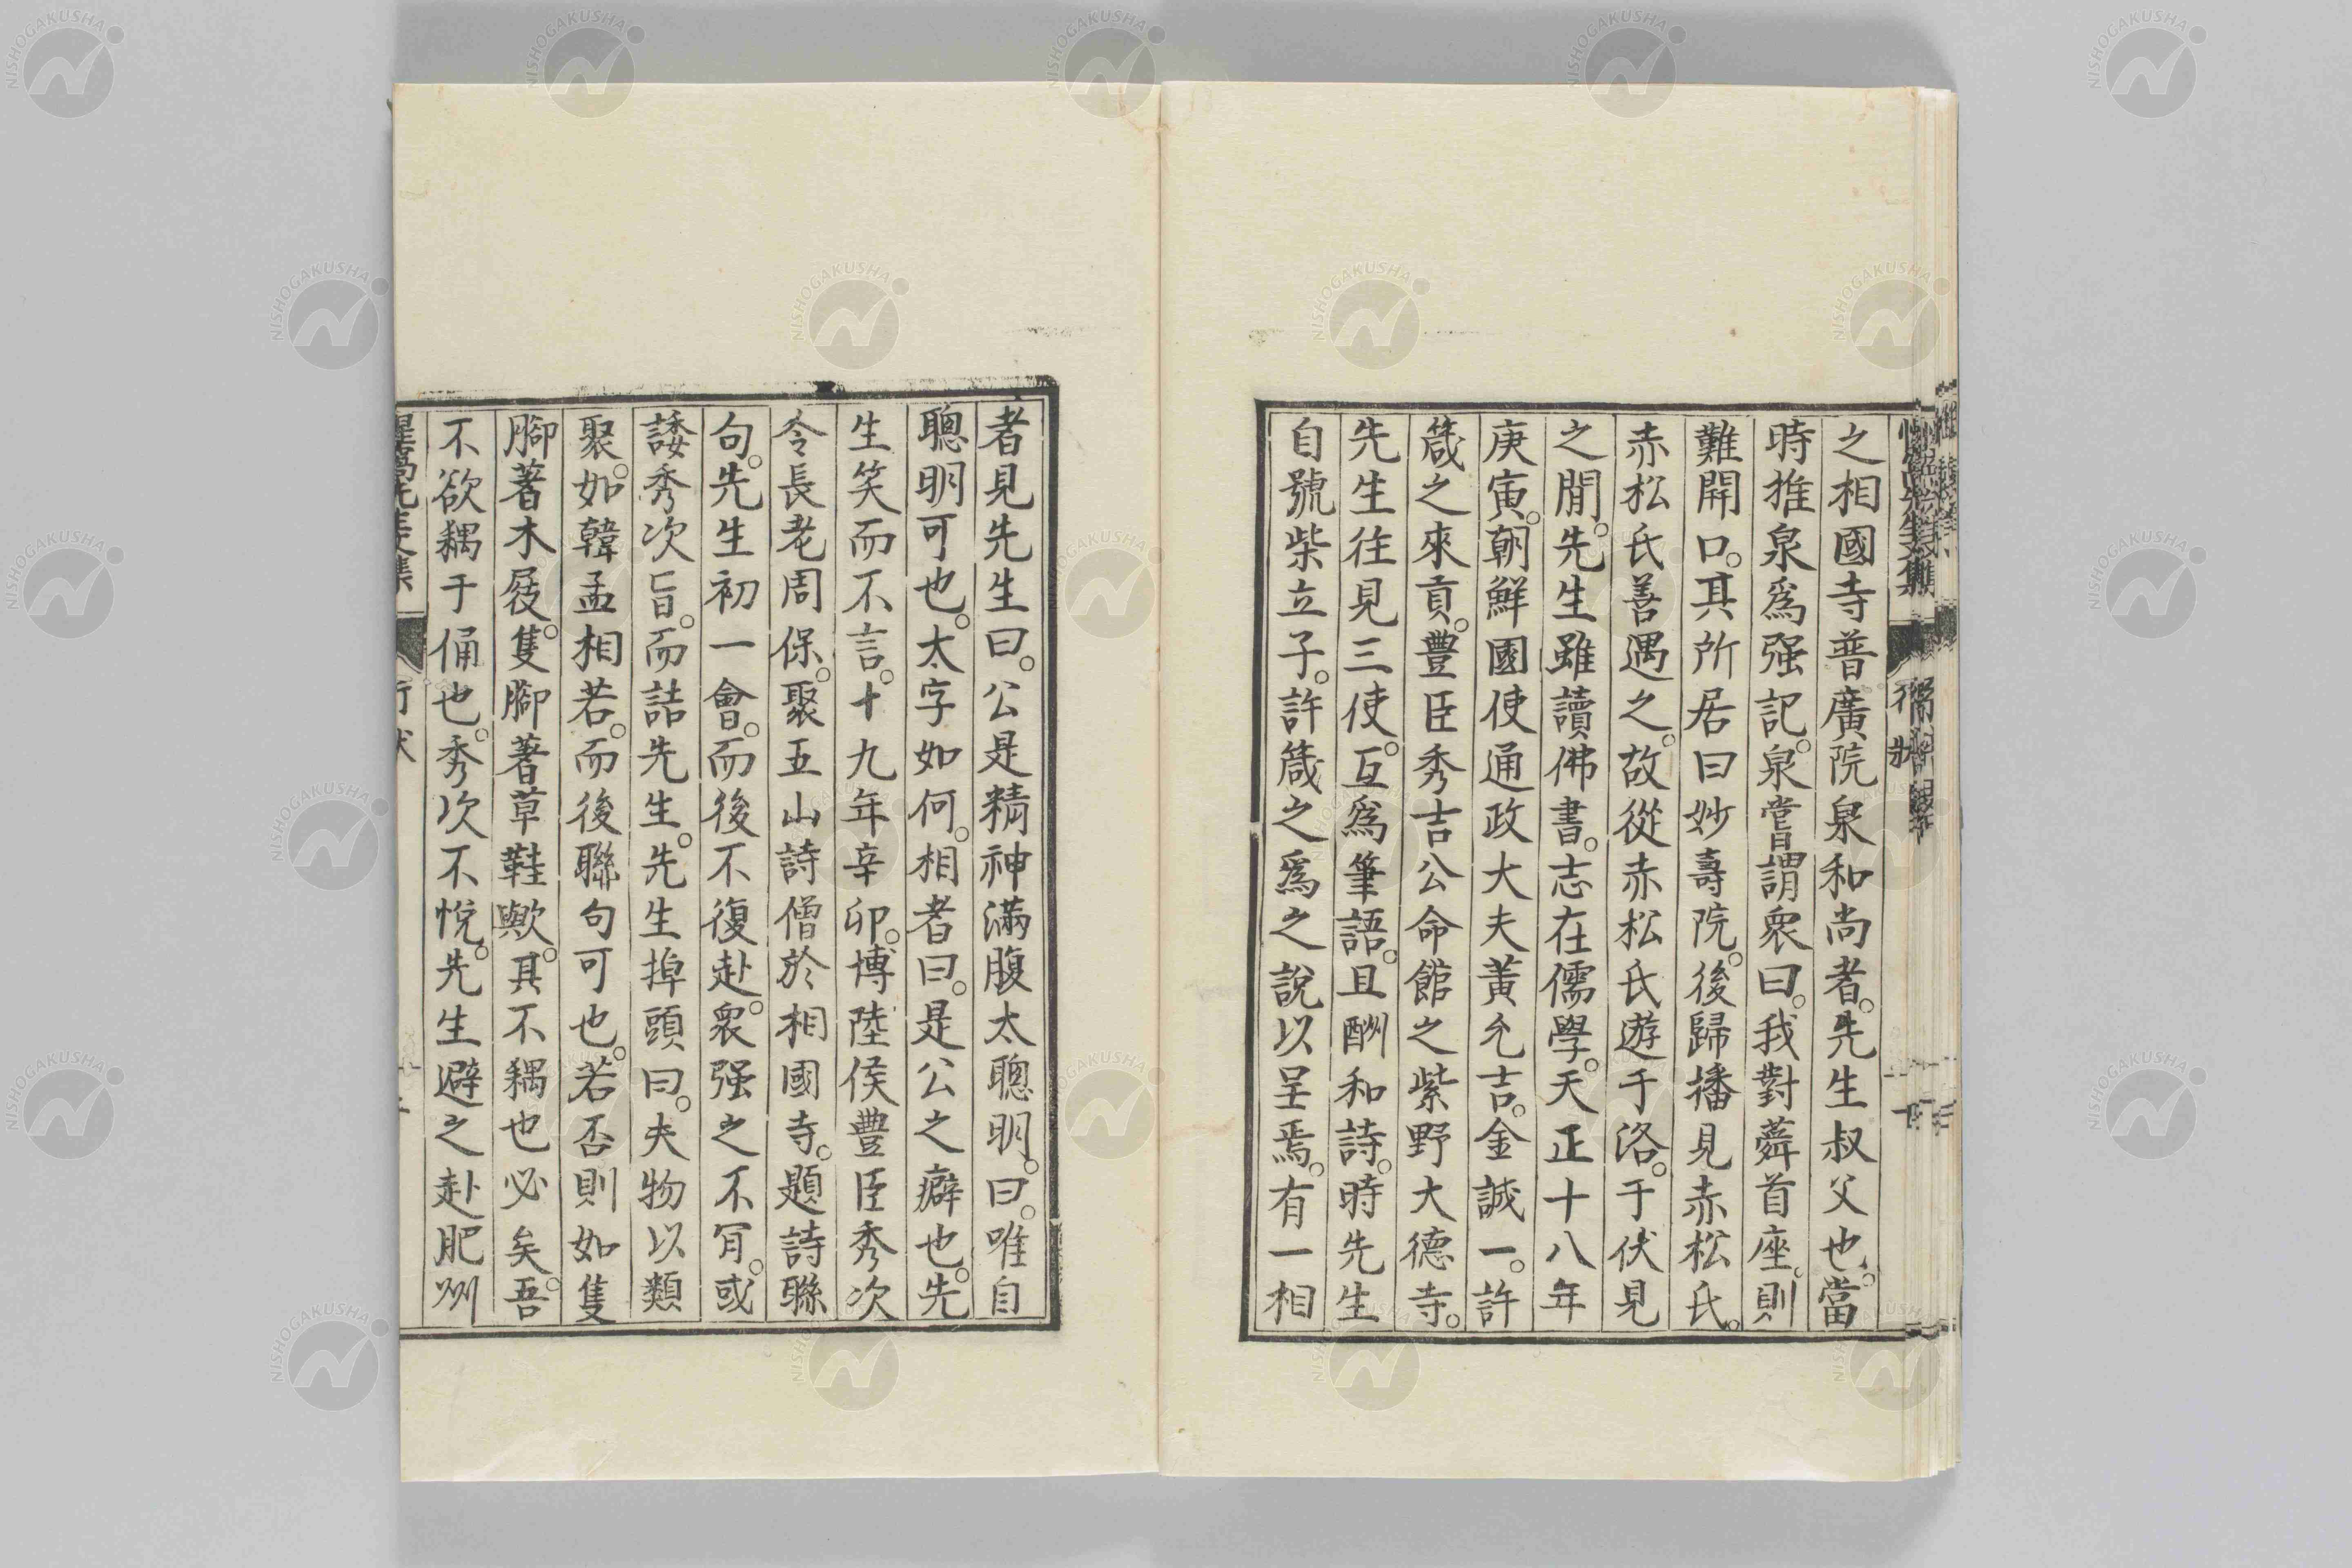 之相國寺普廣院泉和尚者。先生叔父也。當
時推泉爲强記。泉嘗謂衆曰。我對蕣首座。則
難開口。其所居曰妙壽院。後歸播見赤松氏。
赤松氏善遇之。故從赤松氏遊于洛。于伏見
之閒。先生雖讀佛書。志在儒學。天正十八年
庚寅。朝鮮國使通政大夫黃允吉。金誠一。許
箴之來貢。豐臣秀吉公命館之紫野大德寺。
先生往見三使。互爲筆語。且酬和詩。時先生
自號柴立子。許箴之爲之說以呈焉。有一相
者見先生曰。公是精神滿腹太聰明。曰。唯自
聰明可也。太字如何。相者曰。是公之癖也。先
生笑而不言。十九年辛卯。博陸侯豐臣秀次
令長老周保。聚五山詩僧於相國寺。題詩聯
句。先生初一會。而後不復赴。衆强之不肎。或
諉秀次旨。而詰先生。先生掉頭曰。夫物以類
聚。如韓孟相若。而後聯句可也。若否則如隻
腳著木屐。隻腳著草鞋歟。其不耦也必矣。吾
不欲耦于俑也。秀次不悅。先生避之赴肥州